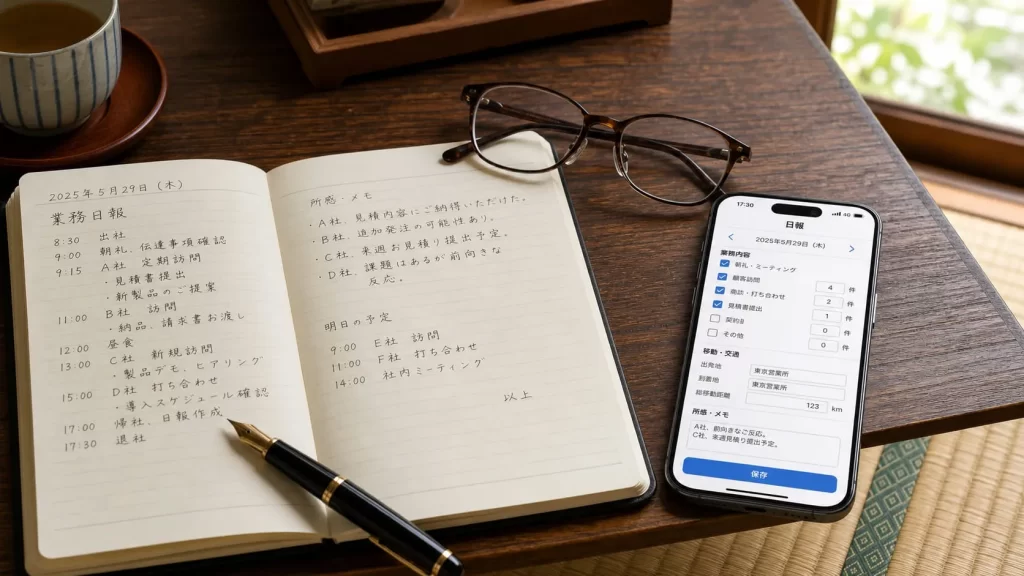 2025年5月29日（木）
業務日報
8:30 出社
9:00 朝礼、伝達事項確認
9:15 A社 定期訪問
・見積書提出
・新製品のご提案
11:00 B社 訪問
・納品、請求書お渡し
12:00 昼食
13:00 C社 新規訪問
・製品デモ、ヒアリング
15:00 D社 打ち合わせ
・導入スケジュール確認
17:00 帰社、日報作成
17:30 退社
所感・メモ
・A社、見積内容にご納得いただけた。
・B社、追加発注の可能性あり。
・C社、来週お見積り提出予定。
・D社、課題はあるが前向きな
反応。
明日の予定
9:00 E社 訪問
11:00 F社 打ち合わせ
14:00 社内ミーティング
以上
17:30 4G
日報
2025年5月29日（木）
業務内容
朝礼・ミーティング
顧客訪問 4 件
商談・打ち合わせ 2 件
見積書提出 1 件
0 件
その他 0 件
移動・交通
出発地 東京営業所
到着地 東京営業所
移動距離 123 km
所感・メモ
A社、前向きなご反応。
C社、来週見積り提出予定。
保存